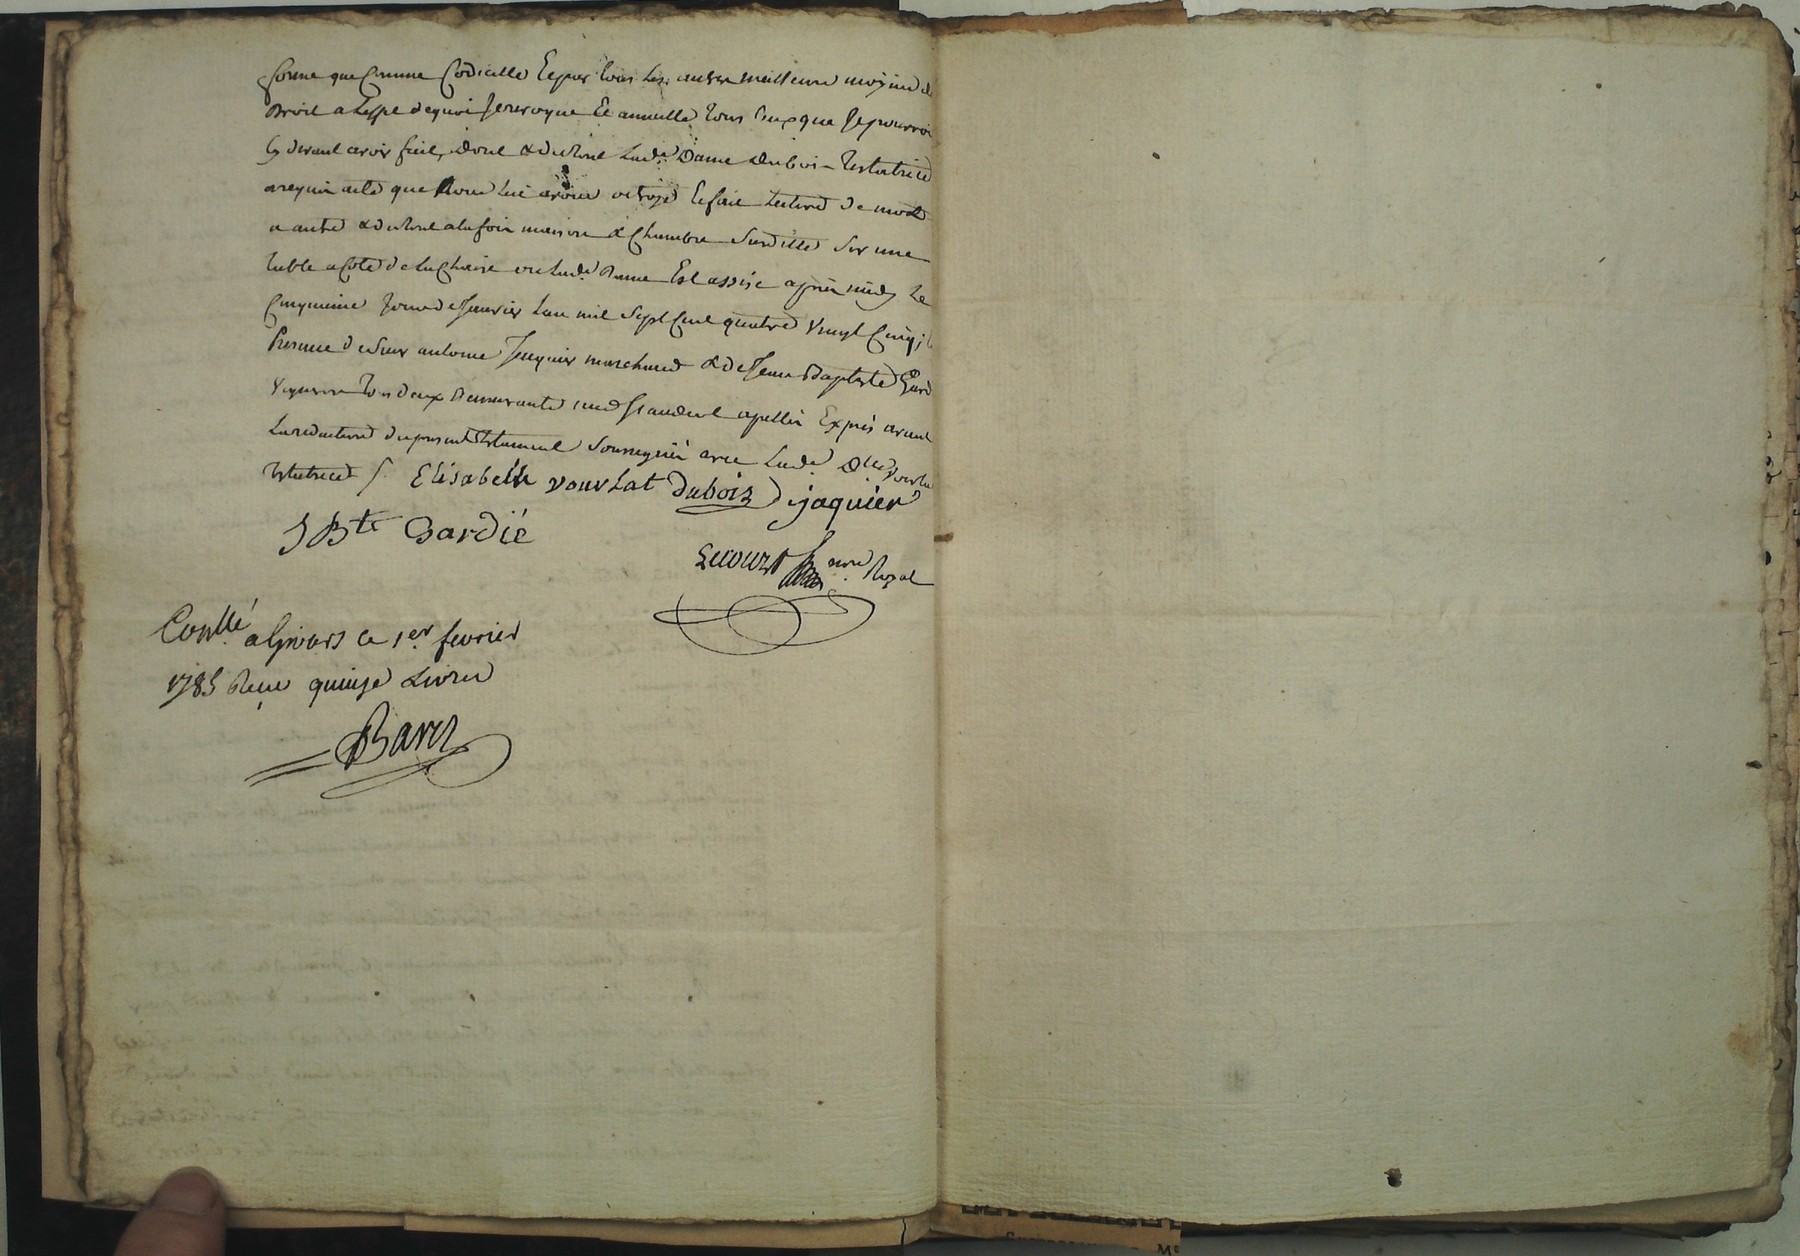 forme que comme Codicille Et par tous les autres meilleurs moyens de
Droit a l'effet de quoi Je revoque Et annulle tous Ceux que Je pourrois
Cy devant avoir fait, Dont & du tout Lad.e Dame Dubois Testatrice
a requis acte que Nous lui avons octroyé Et fait Lecture de mot
a autre & du tout a la fois maison & Chambre Susdittes Sur une
table a Coté de la Chaise ou Lad.e Dame Est assise apres midy Le
Cinquieme Jour de Janvier L'an mil Sept Cent quatre Vingt Cinq,
Presence de Sieur antoine Jaquier marchand & de Jean Baptiste Gard
Vigneron tous deux Demeurants apellés Exprès avant
La redaction du present testament Soussignés avec Lad.e
testatrice /. Elisabelle vourlat dubois jaquier
J Bte Gardié
Lecourt nore Royal
Conllé a Givors ce 1er fevrier
1785 Reçu quinze Livres
Barez